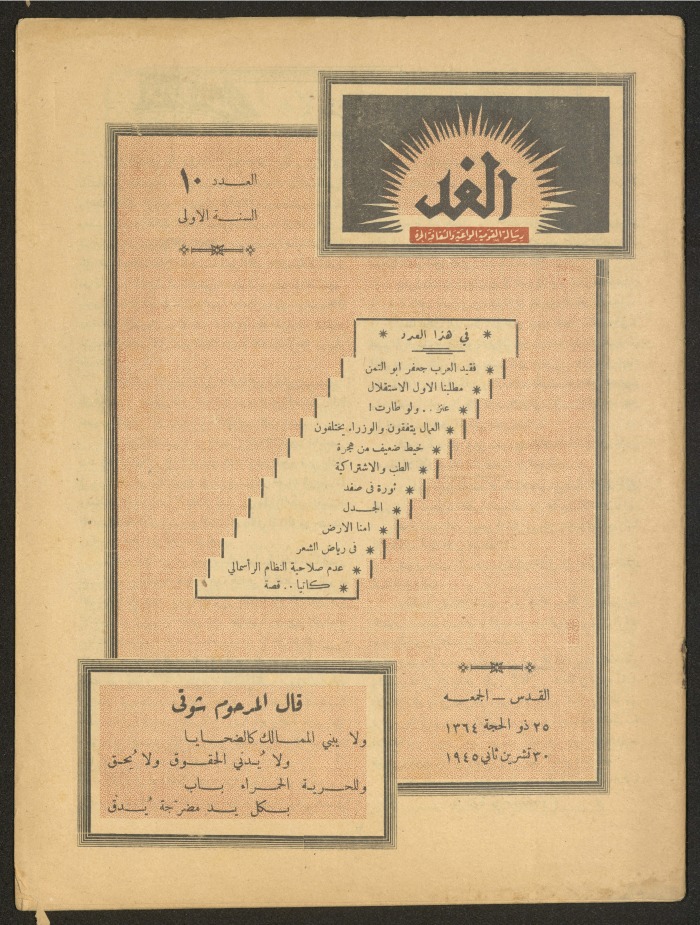 الغد
رسالة القومية الواعية والثقافة الحرة
العدد ١٠
السنة الاولى
في هذا العدد
فقيد العرب جعفر ابو التمن
مطلبنا الاول الاستقلال
عنز .. ولو طارت !
العمال يتفقون والوزراء يختلفون
خيط ضعيف من هجرة
الطب والاشتراكية
ثورة في صفد
الجدل
امنا الارض
في رياض الشعر
عدم صلاحية النظام الرأسمالي
كاتيا .. قصة
القدس — الجمعه
٢٥ ذو الحجة ١٣٦٤
٣٠ تشرين ثاني ١٩٤٥
قال المرحوم شوقي
ولا يبني الممالك كالضحايا
ولا يُدني الحقوق ولا يُحق
وللحرية الحمراء باب
بكل يد مضرّجة يُدق